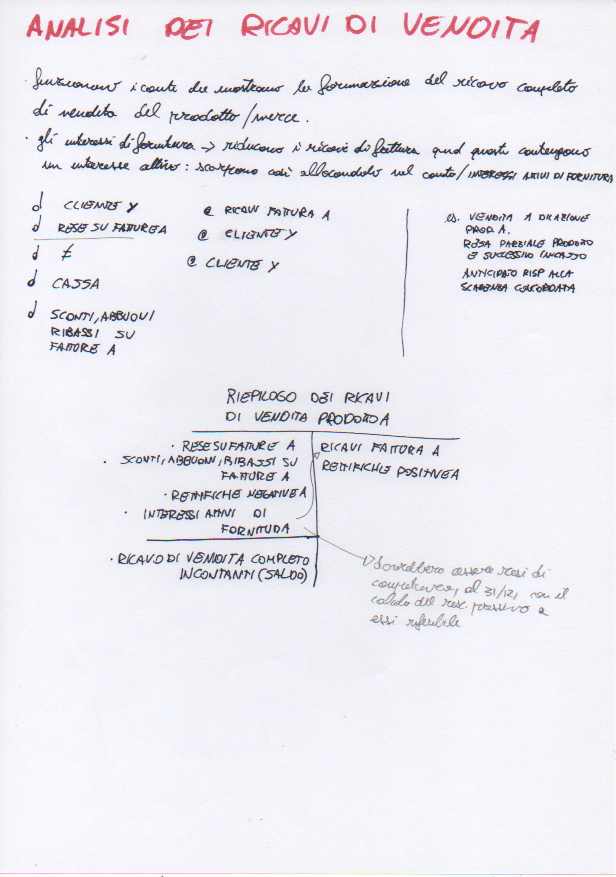 ANALISI DEI RICAVI DI VENDITA
· funzionano i conti che mostrano la formazione del ricavo completo
di vendita del prodotto/merce.
· gli interessi di fornitura → riducono i ricavi di fattura qnd questi contengono
un interesse attivo: scorporo così allocandolo nel conto/INTERESSI ATTIVI DI FORNITURA
d CLIENTE Y
@ RICAVI FATTURA A
d RESE SU FATTURE A
@ CLIENTE Y
d ≠
@ CLIENTE Y
d CASSA
d SCONTI, ABBUONI
RIBASSI SU
FATTURE A
es. VENDITA A DILAZIONE
PROD A.
RESA PARZIALE PRODOTTO
E SUCCESSIVO INCASSO
ANTICIPATO RISP ALLA
SCADENZA CONCORDATA
RIEPILOGO DEI RICAVI
DI VENDITA PRODOTTO A
· RESE SU FATTURE A
· SCONTI, ABBUONI, RIBASSI SU
FATTURE A
· RETTIFICHE NEGATIVE A
· INTERESSI ATTIVI DI
FORNITURA
RICAVI FATTURA A
RETTIFICHE POSITIVE A
· RICAVO DI VENDITA COMPLETO
IN CONTANTI (SALDO)
dovrebbero essere resi di
competenza, al 31/12, con il
calcolo del risc. passivo a
essi riferibile